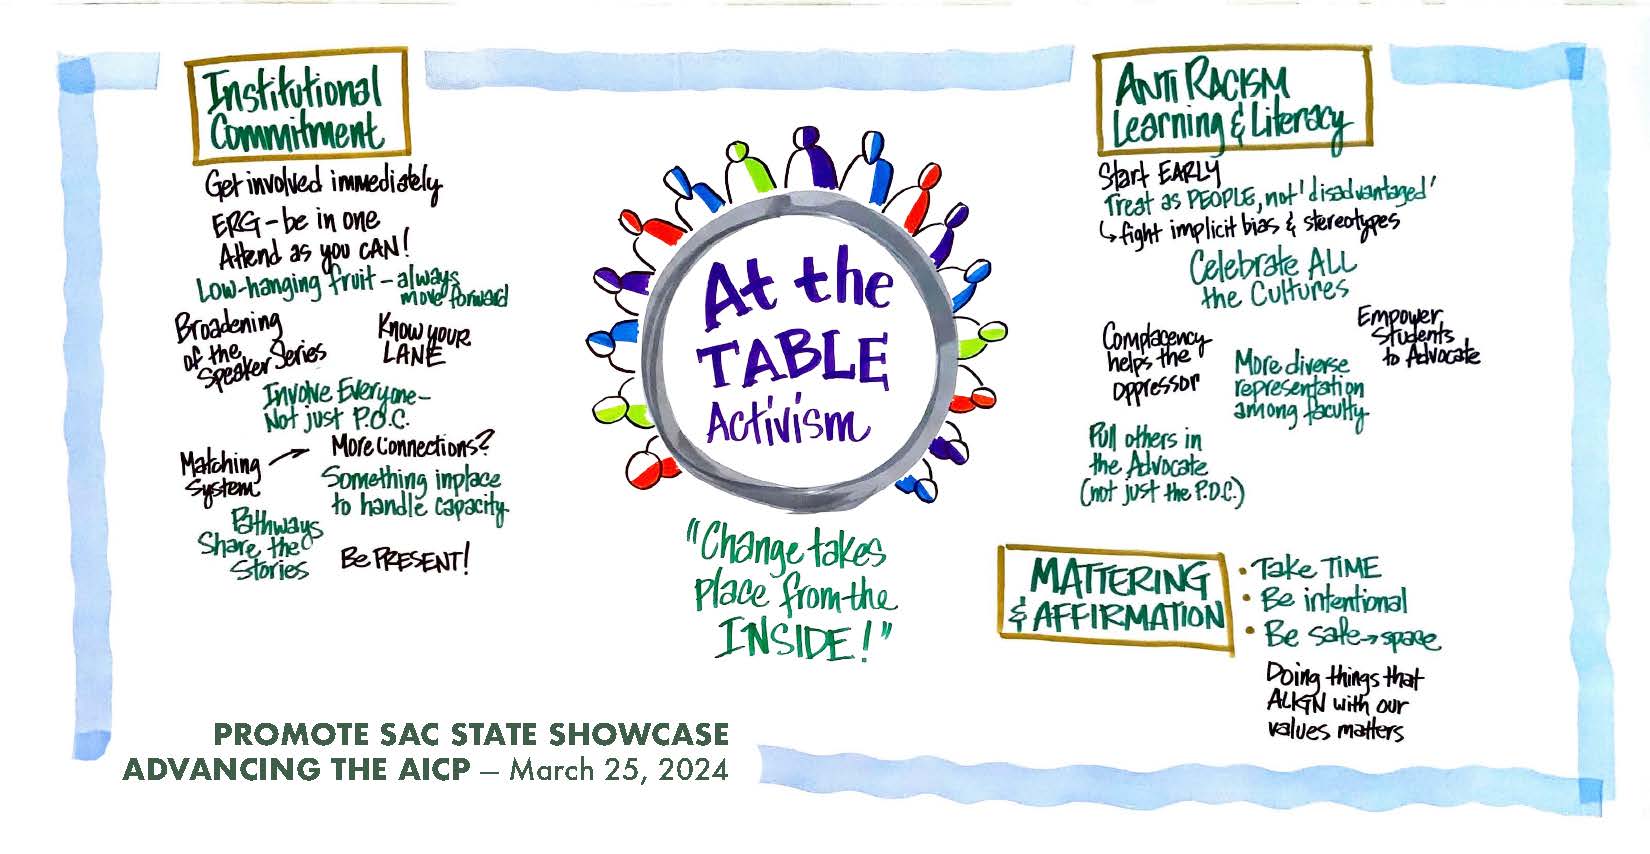 Institutional
Commitment
Get involved immediately
ERG - be in one
Attend as you CAN!
Low-hanging fruit - always
move forward
Broadening
of the
Speaker Series
Know your
LANE
Involve Everyone-
Not just P.O.C.
Matching
System
More Connections?
Something inplace
to handle capacity
Pathways
Share the
Stories
Be PRESENT!
At the
TABLE
Activism
"Change takes
place from the
INSIDE!"
ANTI RACISM
Learning & Literacy
Start EARLY
Treat as PEOPLE, not 'disadvantaged'
↳ fight implicit bias & stereotypes
Celebrate ALL
the Cultures
Complacency
helps the
oppressor
More diverse
representation
among faculty
Empower
Students
to Advocate
Pull others in
the Advocate
(not just the P.O.C.)
MATTERING
& AFFIRMATION
• Take TIME
• Be intentional
• Be safe → space
Doing things that
ALIGN with our
values matters
PROMOTE SAC STATE SHOWCASE
ADVANCING THE AICP — March 25, 2024